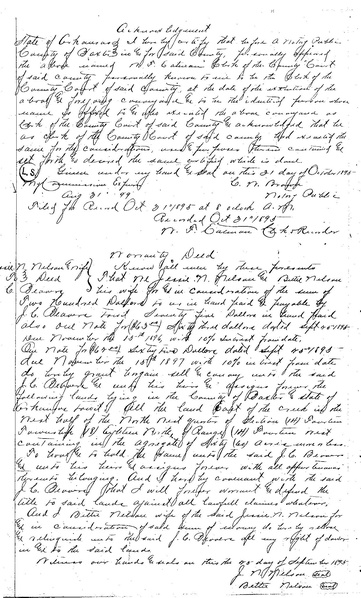 Acknowledgement
State of Arkansas I hereby certify that before a Notary Public
County of Baxter in & for said County, personally appeared
the above named M. F. Clerk of the County Court
of said county personally known to me to be the Clerk of the
County Court of said county, at the date of the execution of the
above & foregoing conveyance & to be the identical person whose
name is & who executed the above conveyance as
Clerk of the County Court of said County & acknowledged that he
as clerk of the County Court of said county had executed the
same for the consideration, uses & purposes therein contained &
set forth & desired the same certified which is done
L.S. Given under my hand & seal on this 21 day of October 1895
My Commission expires C. M.
Aug 21" 99 Notary Public
Filed for Record Oct 21st 1895 at 8 oclock A.M.
Recorded Oct 21st 1895
M. F. Clerk & Recorder
Warranty Deed
M. Nelson & Wife Know all men by these presents
To That we Jessie M. Nelson & Bettie Nelson
his wife for & in consideration of the sum of
Two Hundred Dollars to us in hand paid & payable by
J. C. Seventy five Dollars in hand paid
also One Note for Sixty three dollars dated Sept 1895
Due November the 15th 1896 with 10% Interest from date.
One Note for Sixty two Dollars dated Sept 1895
due November the 15th 1897 with 10% interest from date
do hereby grant bargain sell & convey unto the said
J. C. & unto his heirs & assigns forever the
following lands lying in the County of Baxter & state of
Arkansas towit: All the land East of the creek in the
West half of the North West quarter of Section
Township North of Range West
containing in the aggregate of Sixty Acres more or less
To have & to hold the same unto the said J. C.
& unto his heirs & assigns forever with all appurtenances
thereunto belonging. And I hereby covenant with the said
J. C. that I will forever warrant & defend the
title to said lands against all lawful claims whatever
And I Bettie Nelson wife of the said Jessie M. Nelson for
& in consideration of said sum of money do hereby release
& relinquish unto the said J. C. all my right of dower
in & to the said lands
Witness our hands & seals on this the day of September 1895
J. M. Nelson Seal
Bettie Nelson Seal